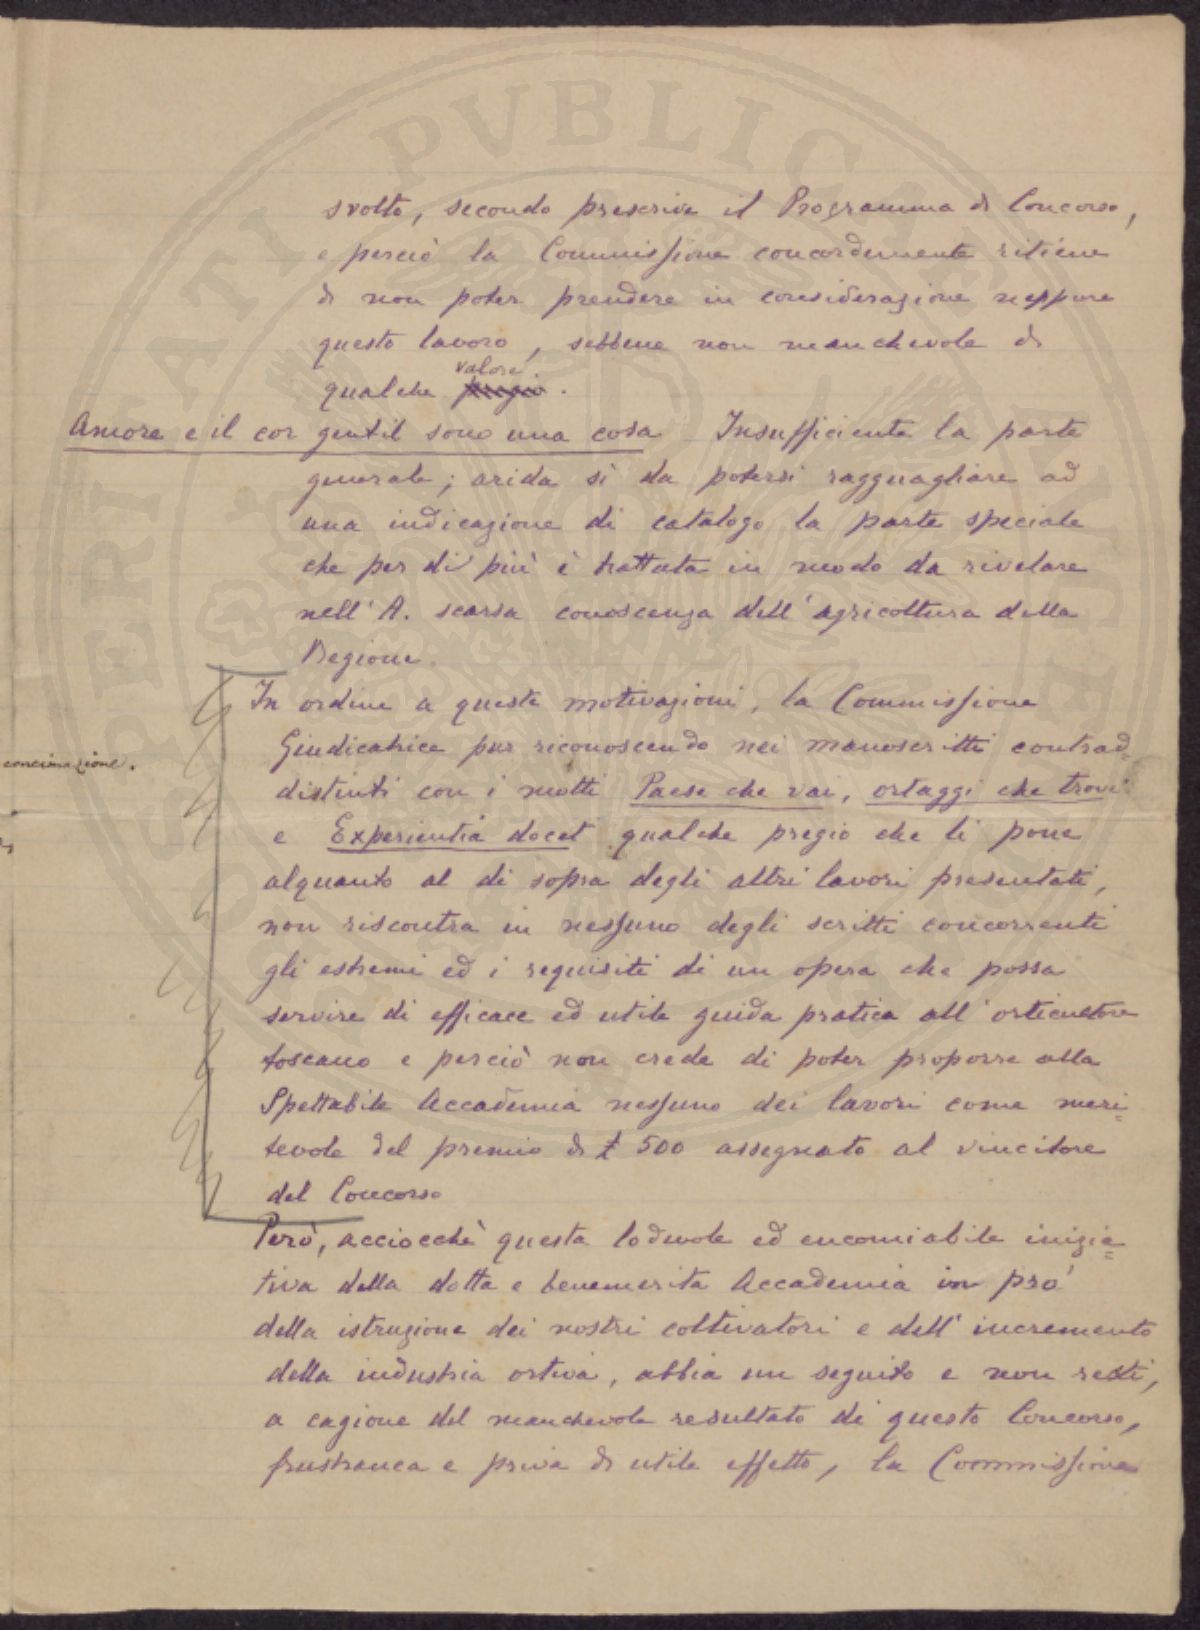 svolto, secondo prescrive il Programma di Concorso,
e perciò la Commissione concordemente ritiene
di non poter prendere in considerazione neppure
questo lavoro, sebbene non manchevole di
valore
qualche pregio.
Amore e il cor gentil sono una cosa Insufficiente la parte
generale; arida sì da potersi ragguagliare ad
una indicazione di catalogo la parte speciale
che per di più è trattata in modo da rivelare
nell'A. scarsa conoscenza dell'agricoltura della
Regione.
In ordine a queste motivazioni, la Commissione
Giudicatrice pur riconoscendo nei manoscritti contrad=
concimazione.
distinti con i motti Paese che vai, ortaggi che trovi
e Experientia docet qualche pregio che li pone
alquanto al di sopra degli altri lavori presentati,
non riscontra in nessuno degli scritti concorrenti
gli estremi ed i requisiti di un opera che possa
servire di efficace ed utile guida pratica all'orticultore
toscano e perciò non crede di poter proporre alla
Spettabile Accademia nessuno dei lavori come meri=
tevole del premio di £ 500 assegnato al vincitore
del Concorso
Però, acciocchè questa lodevole ed encomiabile inizia=
tiva della dotta e benemerita Accademia in pro'
della istruzione dei nostri coltivatori e dell'incremento
della industria ortiva, abbia un seguito e non resti,
a cagione del manchevole resultato di questo Concorso,
frustranea e priva di utile effetto, la Commissione
PVBLICA